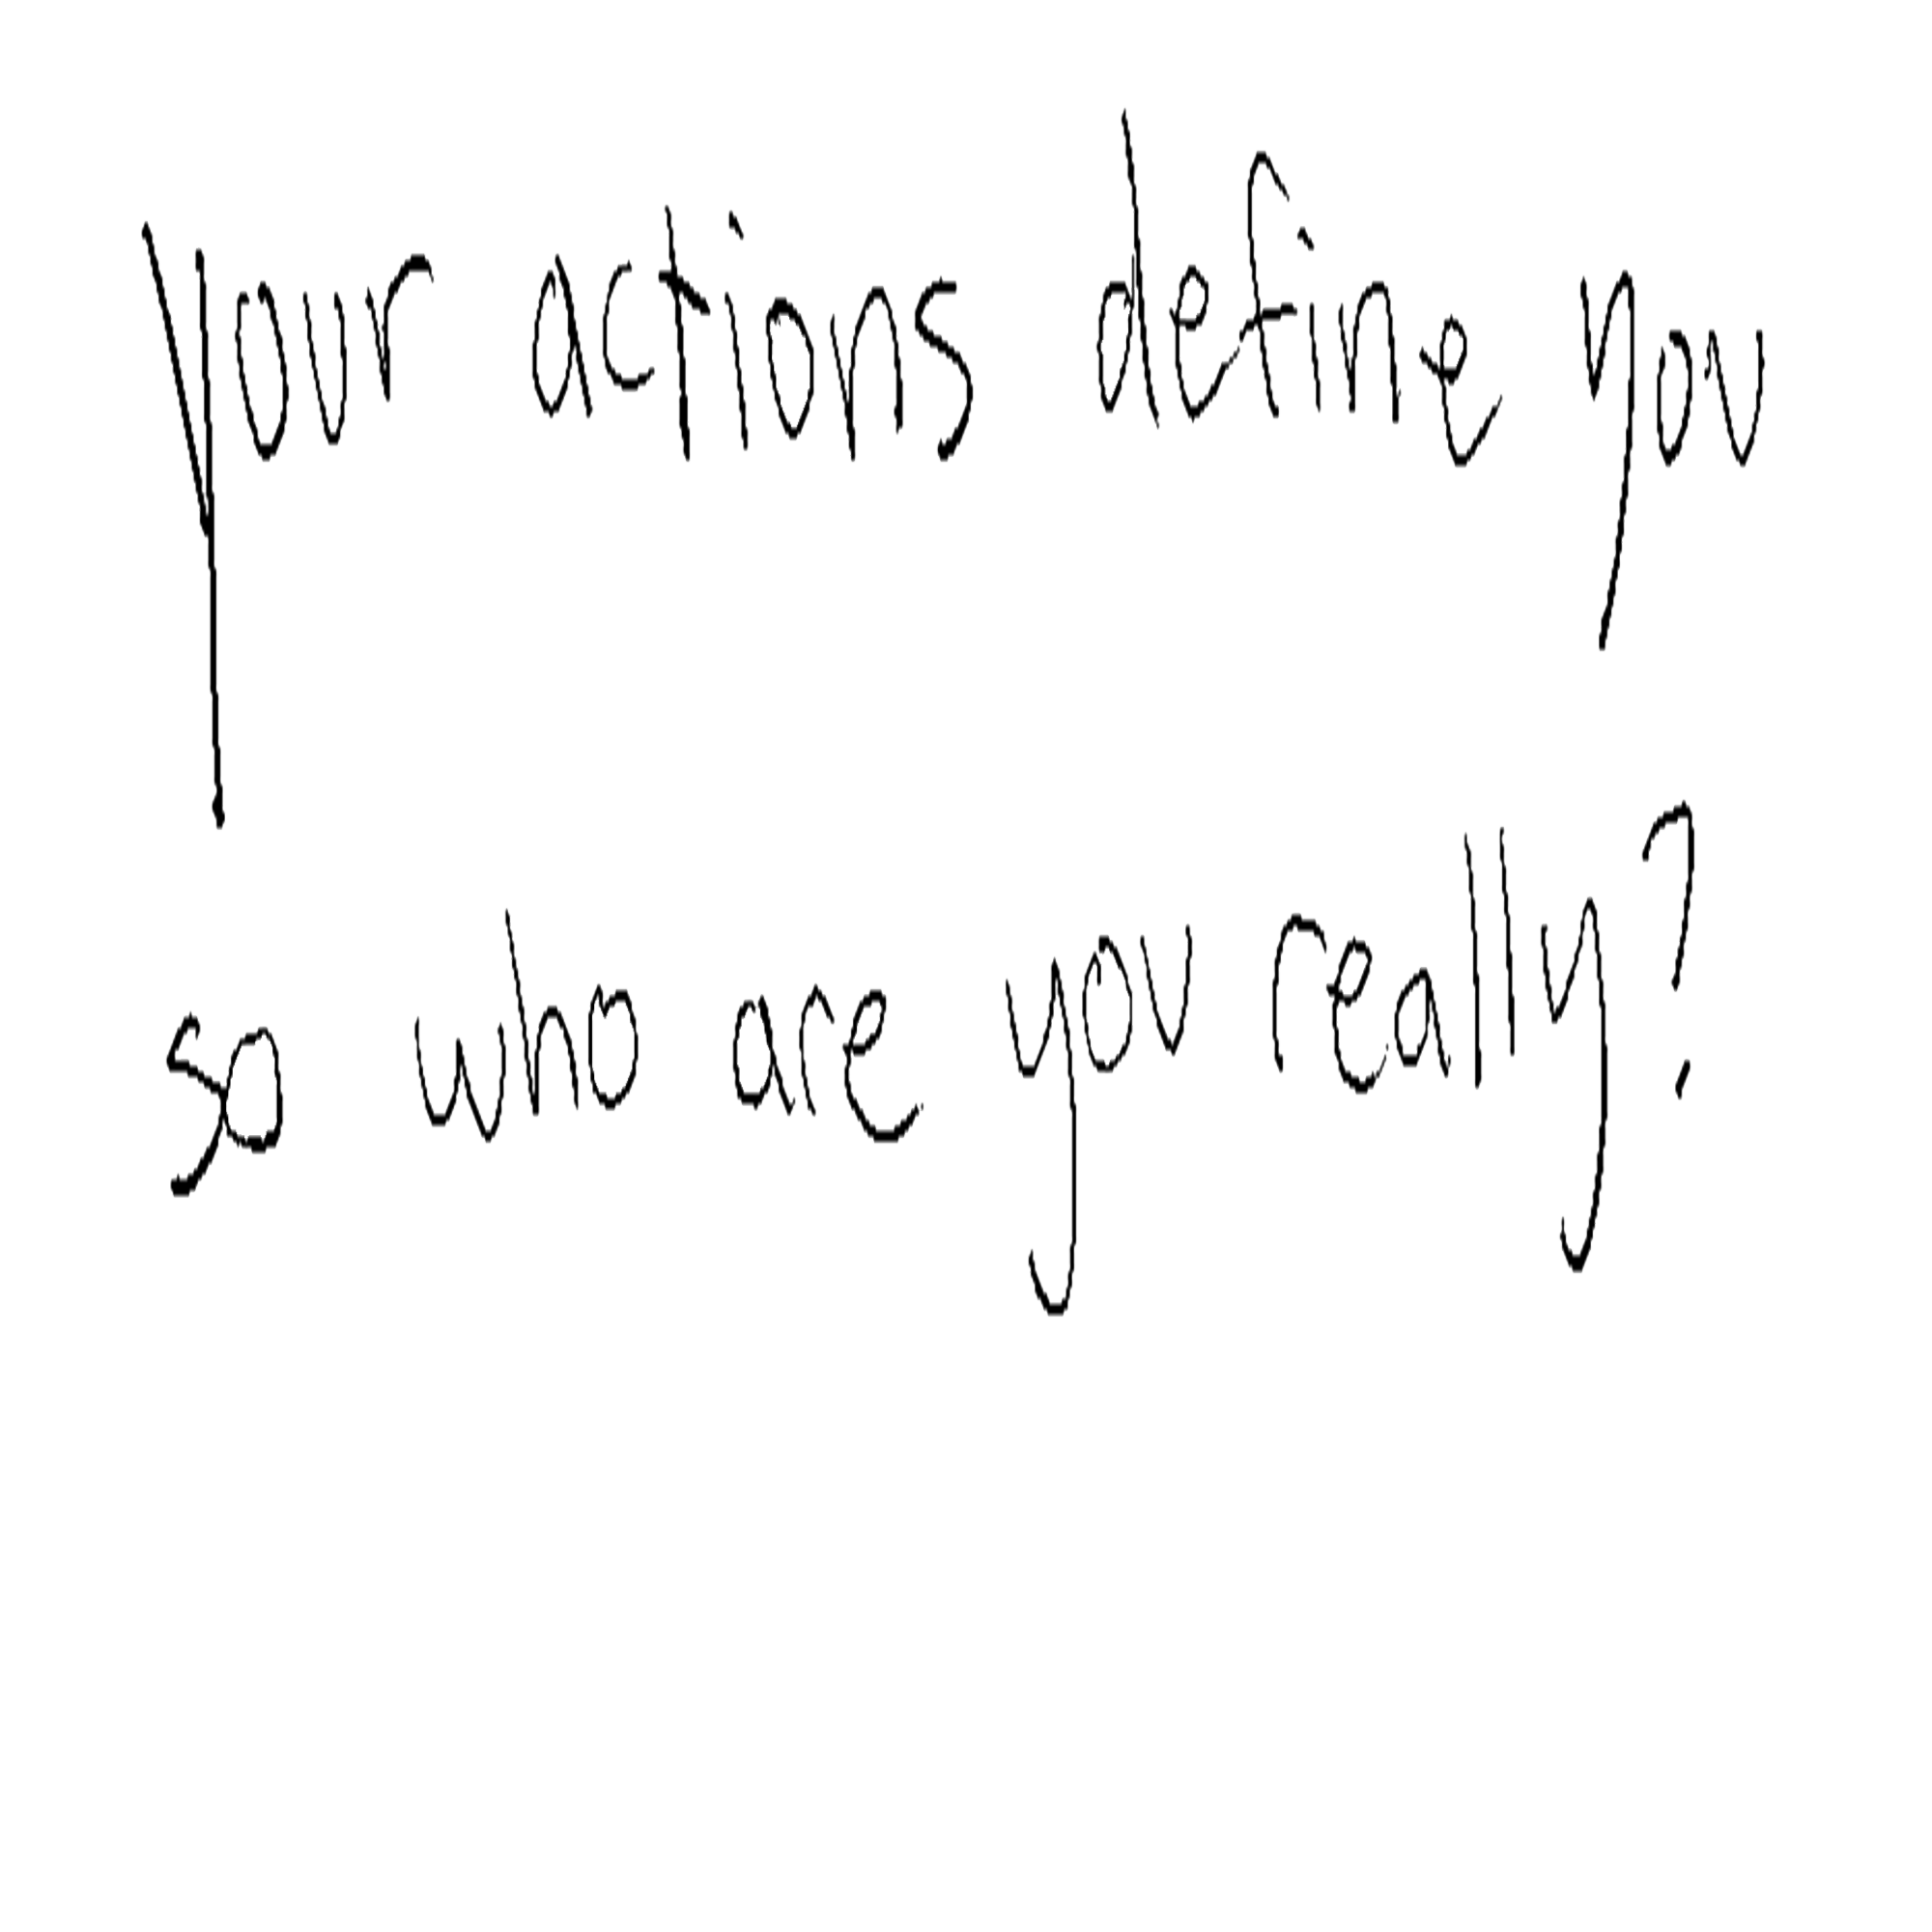 your actions define you
so who are you really?